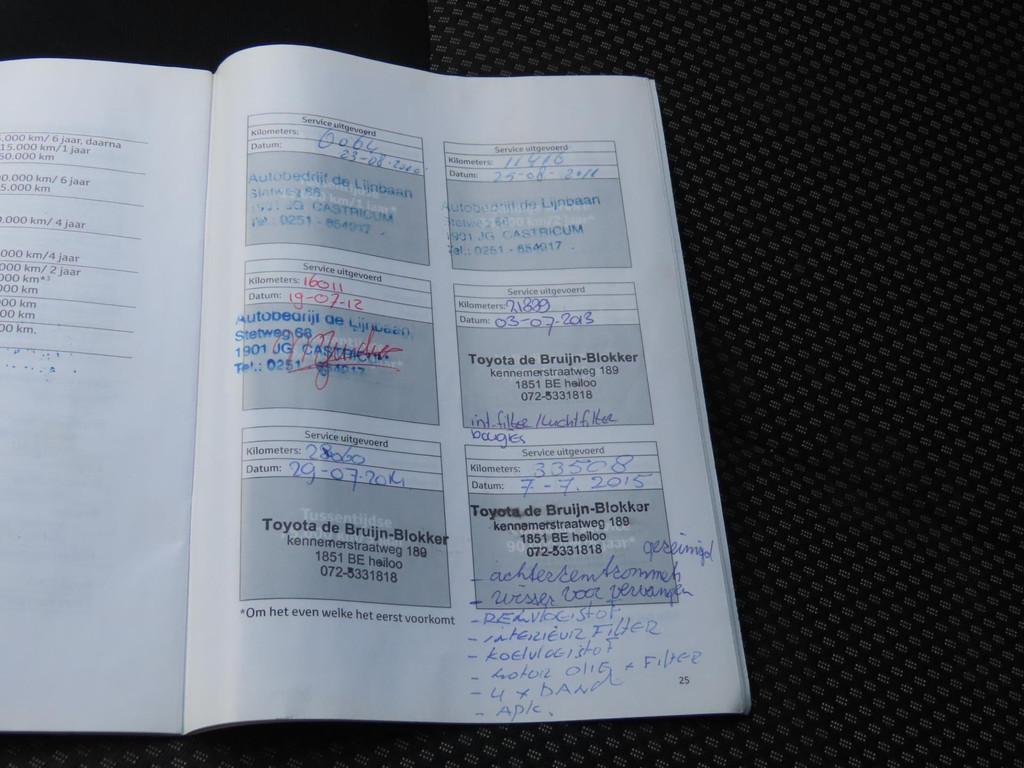 .000 km/ 6 jaar, daarna
15.000 km/1 jaar
50.000 km
0.000 km/ 6 jaar
5.000 km
0.000 km/ 4 jaar
000 km/4 jaar
000 km/ 2 jaar
000 km*³
000 km
000 km
000 km
00 km.
Service uitgevoerd
Kilometers: 6064
Datum: 23-08-2010
Autobedrijf de Lijnbaan
Stetweg 68
1901 JG CASTRICUM
Tel.: 0251 - 654917
Service uitgevoerd
Kilometers: 11416
Datum: 25-08-2011
Autobedrijf de Lijnbaan
Stetweg 68
1901 JG CASTRICUM
Tel.: 0251 - 654917
Service uitgevoerd
Kilometers: 16011
Datum: 19-07-12
Autobedrijf de Lijnbaan
Stetweg 68
1901 JG CASTRICUM
Tel.: 0251 - 654917
Service uitgevoerd
Kilometers: 21899
Datum: 03-07-2013
Toyota de Bruijn-Blokker
kennemerstraatweg 189
1851 BE heiloo
072-5331818
int.filter/luchtfilter
bougies
Service uitgevoerd
Kilometers: 28060
Datum: 29-07-2014
Tussentijdse
Toyota de Bruijn-Blokker
kennemerstraatweg 189
1851 BE heiloo
072-5331818
*Om het even welke het eerst voorkomt
Service uitgevoerd
Kilometers: 33508
Datum: 7-7-2015
Toyota de Bruijn-Blokker
kennemerstraatweg 189
1851 BE heiloo
072-5331818
gereinigd
- achterremtrommels
- wisser voor vervangen
- REMVLOEISTOF
- INTERIEUR FILTER
- KOELVLOEISTOF
- MOTOR OLIE + FILTER
- 4 x BAND
- APK.
25